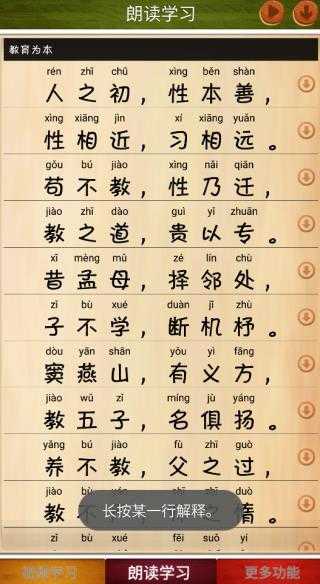 朗读学习
教育为本
rén zhī chū xìng běn shàn
人之初，性本善，
xìng xiāng jìn xí xiāng yuǎn
性相近，习相远。
gǒu bú jiào xìng nǎi qiān
苟不教，性乃迁，
jiào zhī dào guì yǐ zhuān
教之道，贵以专。
xī mèng mǔ zé lín chù
昔孟母，择邻处，
zǐ bù xué duàn jī zhù
子不学，断机杼。
dòu yān shān yǒu yì fāng
窦燕山，有义方，
jiào wǔ zǐ míng jù yáng
教五子，名俱扬。
yǎng bú jiào fù zhī guò
养不教，父之过，
jiào bù duò
教 惰。
长按某一行解释。
zǐ bù xué fēi suǒ yí
朗读学习 更多功能